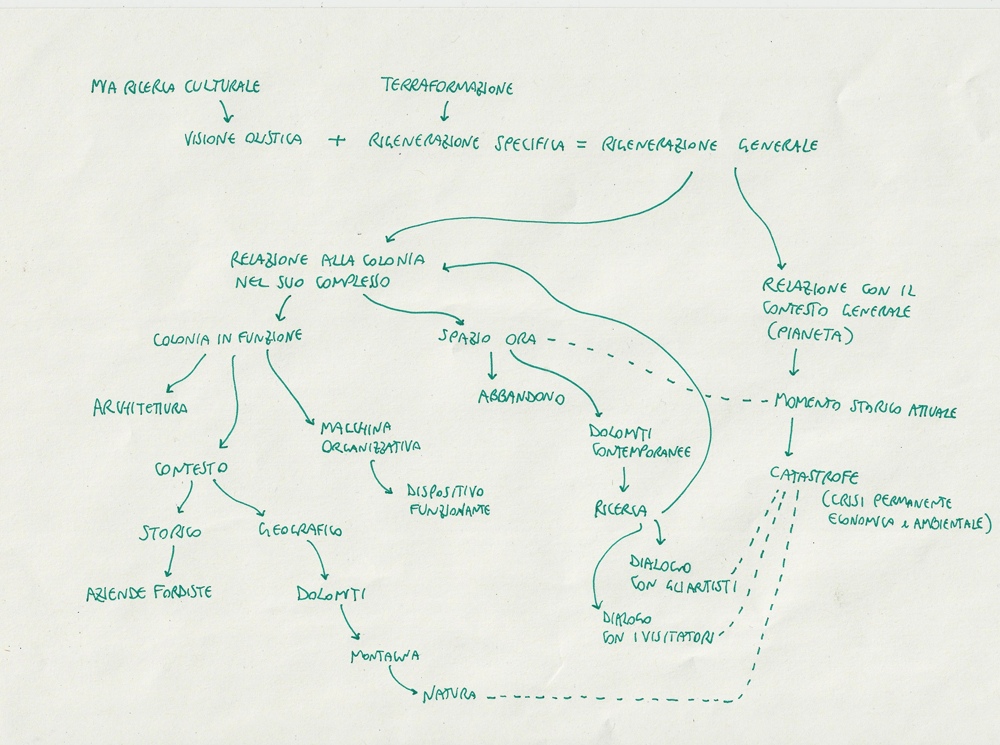 MIA RICERCA CULTURALE
TERRAFORMAZIONE
VISIONE OLISTICA + RIGENERAZIONE SPECIFICA = RIGENERAZIONE GENERALE
RELAZIONE ALLA COLONIA
NEL SUO COMPLESSO
RELAZIONE CON IL
CONTESTO GENERALE
(PIANETA)
COLONIA IN FUNZIONE
SPAZIO ORA
ARCHITETTURA
ABBANDONO
MOMENTO STORICO ATTUALE
MACCHINA
ORGANIZZATIVA
DOLOMITI
CONTEMPORANEE
CONTESTO
CATASTROFE
(CRISI PERMANENTE
ECONOMICA e AMBIENTALE)
DISPOSITIVO
FUNZIONANTE
RICERCA
STORICO
GEOGRAFICO
DIALOGO
CON GLI ARTISTI
AZIENDE FORDISTE
DOLOMITI
DIALOGO
CON I VISITATORI
MONTAGNA
NATURA